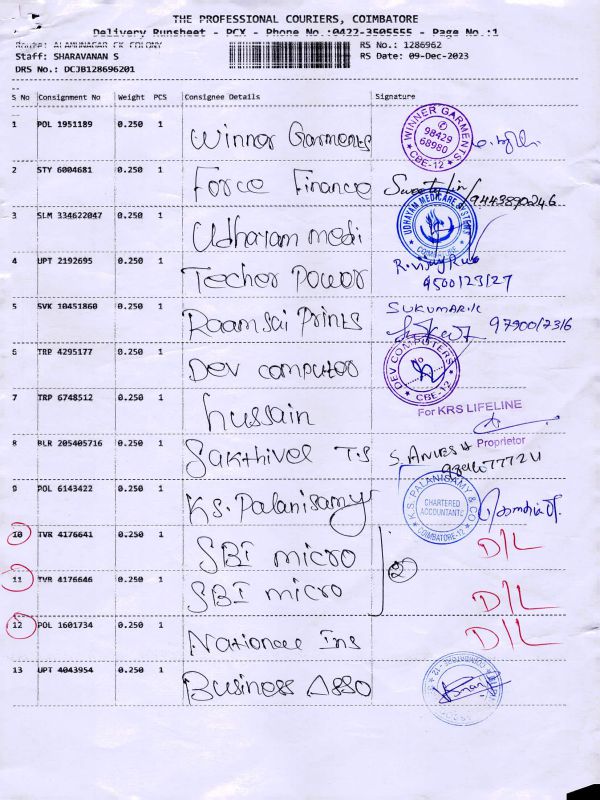 THE PROFESSIONAL COURIERS, COIMBATORE
Delivery Runsheet - PCX - Phone No.:0422-3505555 - Page No.:1
Route: ALAMUNAGAR CK COLONY
RS No.: 1286962
Staff: SHARAVANAN S
RS Date: 09-Dec-2023
DRS No.: DCJB128696201
S No Consignment No Weight PCS Consignee Details Signature
1 POL 1951189 0.250 1 Winner Garments
WINNER GARMENTS 98429 68980 CBE-12
2 STY 6004681 0.250 1 Force Finance 9443890246
3 SLM 334622047 0.250 1 Udhayam medi
UDHAYAM MEDICARE SYSTEMS COIMBATORE
4 UPT 2192695 0.250 1 Techor Power
9500123127
5 SVK 10451860 0.250 1 Raamsai Prints SUKUMAR.K
6 TRP 4295177 0.250 1 Dev computer
DEV COMPUTERS CBE-12
7 TRP 6748512 0.250 1 hussain
For KRS LIFELINE
Proprietor
8 BLR 205405716 0.250 1 Sakthivel T.S
9 POL 6143422 0.250 1 K.S. Palanisamy
K.S. PALANISAMY & CO CHARTERED ACCOUNTANTS COIMBATORE-12
10 TVR 4176641 0.250 1 SBI micro D/L
2
11 TVR 4176646 0.250 1 SBI micro D/L
12 POL 1601734 0.250 1 National Ins D/L
13 UPT 4043954 0.250 1 Business Asso